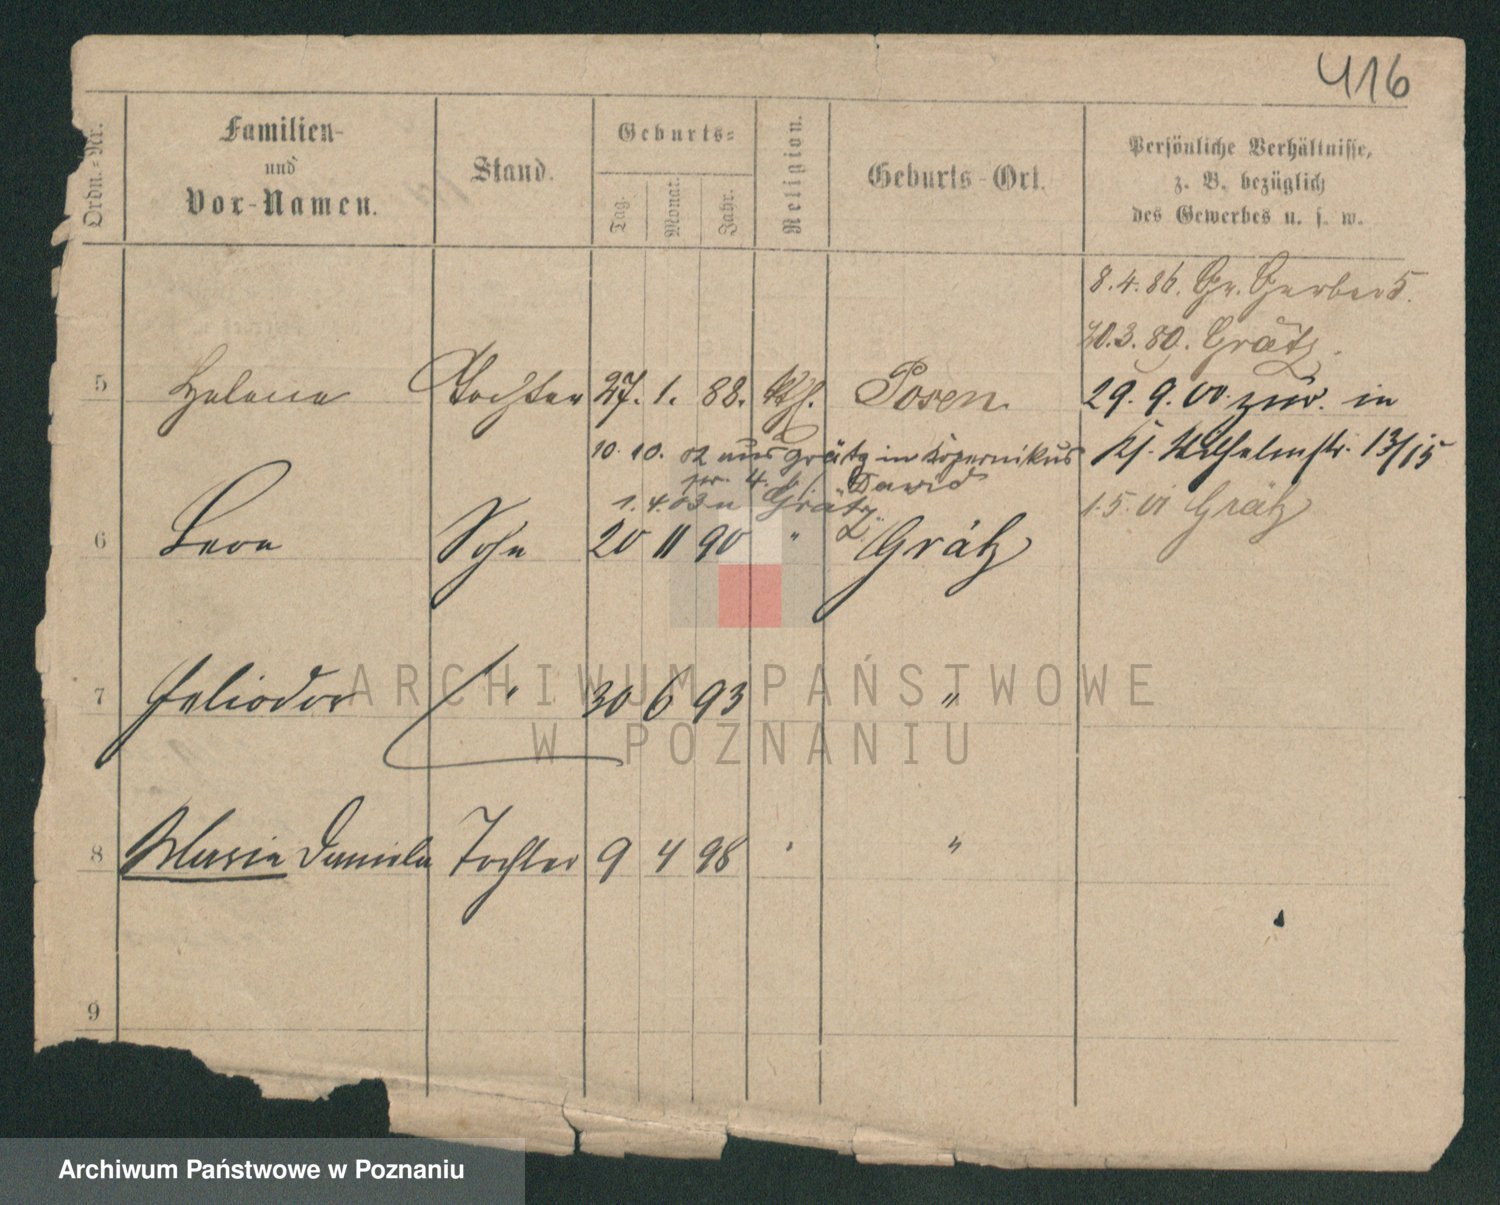 416
Ordn.-Nr.
Familien-
und
Vor-Namen.
Stand.
Geburts-
Tag.
Monat.
Jahr.
Religion.
Geburts-Ort.
Persönliche Verhältnisse,
z. B. bezüglich
des Gewerbes u. s. w.
8.4.86. Gr. Gerber 5.
30.3.80. Grätz.
5 Helena Tochter 27. 1. 88. Kth. Posen 29. 9. 00. zur. in
10. 10. 02 aus Grätz in Kopernikus Kl. Wilhelmstr. 13/15
David
1. 4. 03 n Grätz 1.5.01 Grätz
6 Leon Sohn 20 11 90 " Grätz
7 Heliodor " 30 6 93 "
8 Maria Daniela Tochter 9 4 98 " "
9
ARCHIWUM PAŃSTWOWE
W POZNANIU
Archiwum Państwowe w Poznaniu